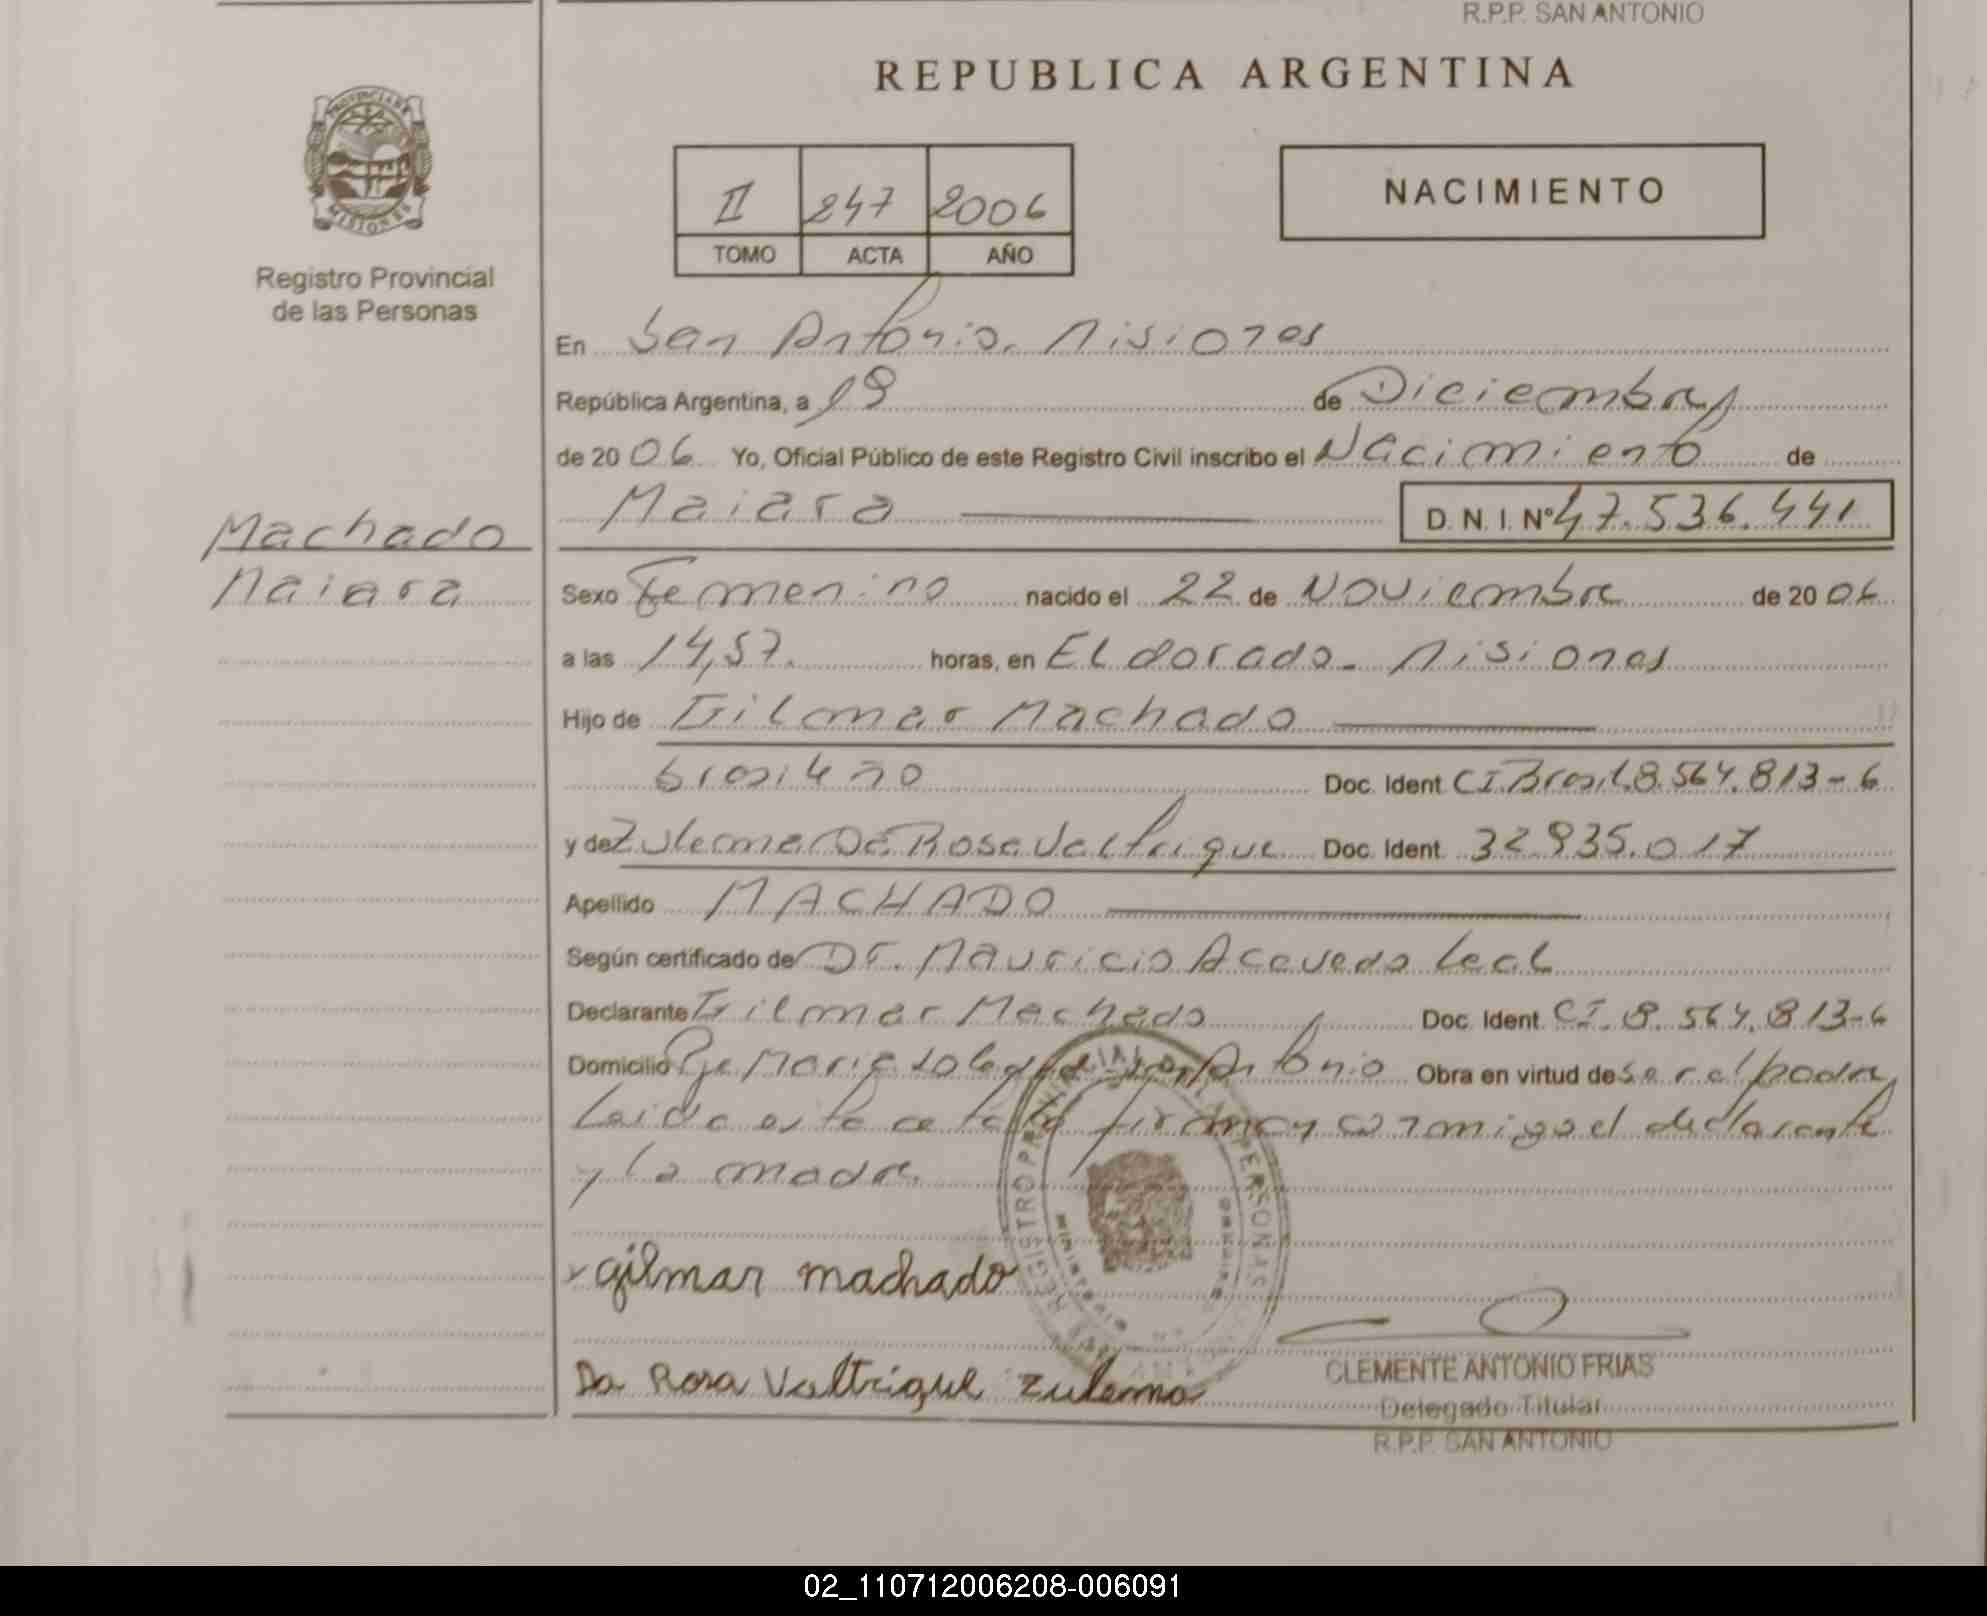 R.P.P. SAN ANTONIO
REPUBLICA ARGENTINA
PROVINCIA DE MISIONES
Registro Provincial
de las Personas
II 247 2006
TOMO ACTA AÑO
NACIMIENTO
En San Antonio. Misiones
República Argentina, a 19 de Diciembre
de 2006 Yo, Oficial Público de este Registro Civil inscribo el Nacimiento de
Maiara D. N. I. Nº 47.536.441
Machado
Maiara
Sexo Femenino nacido el 22 de Noviembre de 2006
a las 14,57. horas, en Eldorado - Misiones
Hijo de Gilmar Machado
brasileño Doc. Ident. CI.Brasil.8.564.813-6
y de Zulema Da Rosa Valtrique Doc. Ident. 32.935.017
Apellido MACHADO
Según certificado de Dr. Mauricio Acevedo Leal
Declarante Gilmar Machado Doc. Ident. CI. 8.564.813-6
Domicilio Pje Maria Soledad San Antonio Obra en virtud de ser el padre
Leida esta acta la firman conmigo el declarante
y la madre
gilmar machado
Da Rosa Valtrique Zulema
CLEMENTE ANTONIO FRIAS
Delegado Titular
R.P.P. SAN ANTONIO
02_110712006208-006091